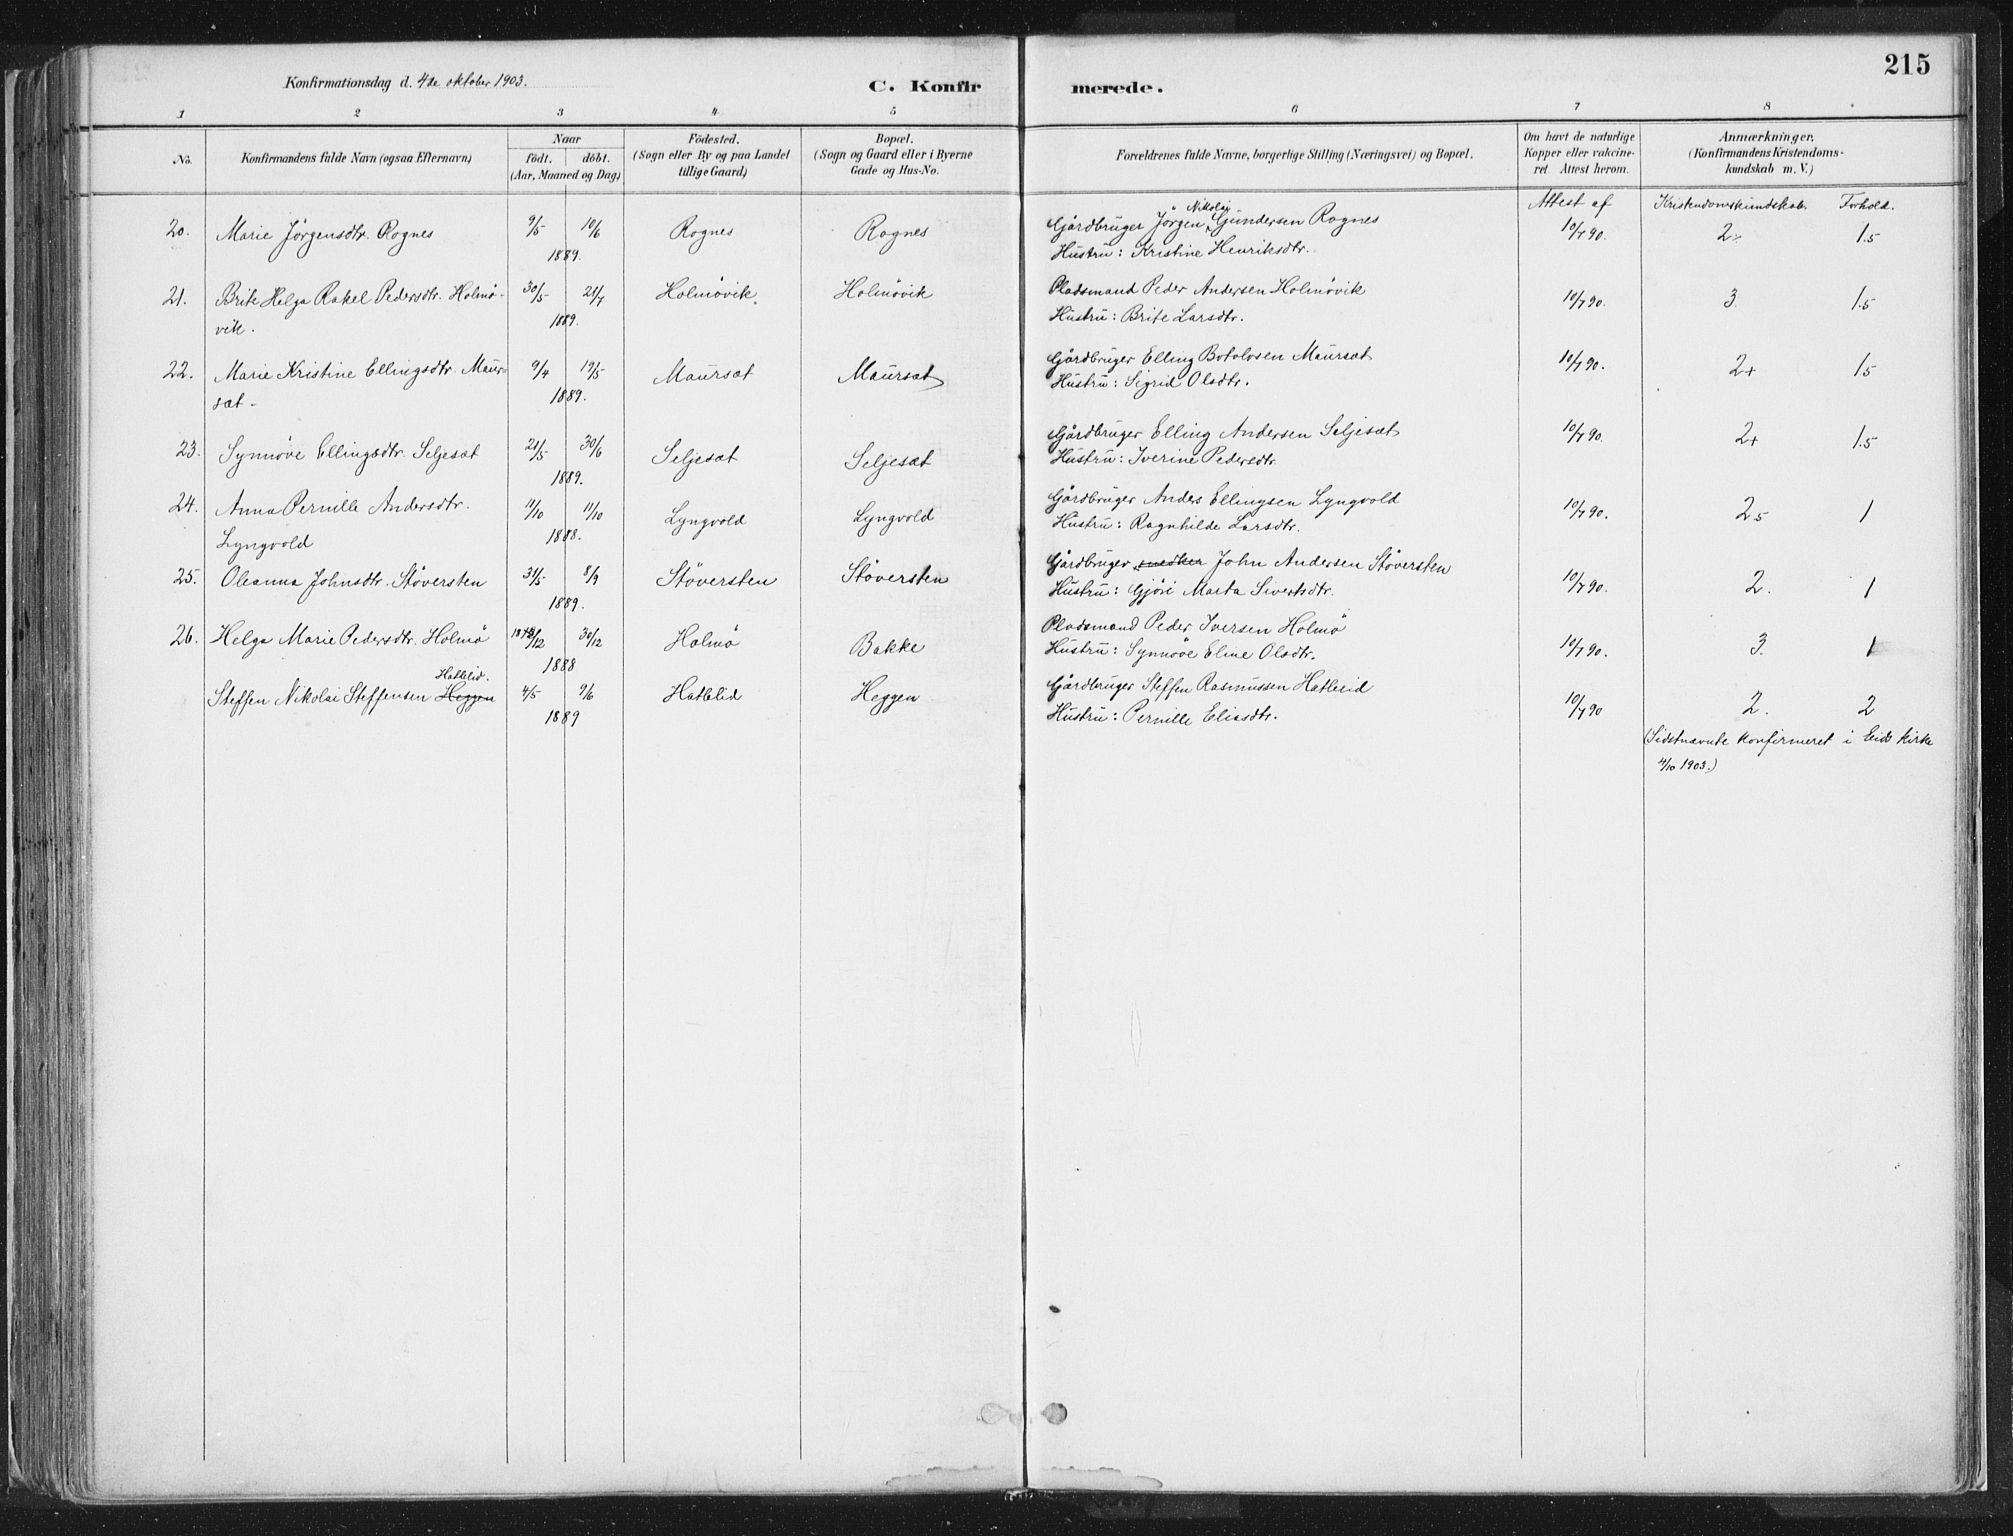 215
Konfirmationsdag d. 4de oktober 1903. C. Konfir merede.
1 2 3 4 5 6 7 8
No. Konfirmandens fulde Navn (ogsaa Efternavn) Naar Födested. Bopæl. Forældrenes fulde Navne, borgerlige Stilling (Næringsvei) og Bopæl. Om havt de naturlige Anmærkninger.
födt. döbt. (Sogn eller By og paa Landet (Sogn og Gaard eller i Byerne Kopper eller vakcine- (Konfirmandens Kristendoms-
(Aar, Maaned og Dag) tillige Gaard) Gade og Hus-No. ret. Attest herom. kundskab m. V.)
Attest af Kristendomskundskab. Forhold.
Nikolai
20. Marie Jörgensdtr. Rognes 9/5 10/6 Rognes Rognes Gårdbruger Jörgen Gundersen Rognes 10/7 90. 2÷ 1.5
1889. Hustru: Kristine Henriksdtr.
21. Brite Helga Rakel Pedersdtr. Holmö- 30/5 21/7 Holmövik. Holmövik Pladsmand Peder Andersen Holmövik 10/7 90. 3. 1.5
vik. 1889. Hustru: Brite Larsdtr.
22. Marie Kristine Ellingsdtr. Maur- 9/4 19/5 Maursæt Maursæt Gårdbruger Elling Botolvsen Maursæt 10/7 90. 2+ 1.5
sæt. 1889. Hustru: Sigrid Olsdtr.
23. Synnöve Ellingsdtr. Seljesæt 21/5 30/6 Seljesæt Seljesæt Gårdbruger Elling Andersen Seljesæt 10/7 90. 2+ 1.5
1889. Hustru: Iverine Pedersdtr.
24. Anna Pernille Andersdtr. 11/10 11/10 Lyngvold Lyngvold Gårdbruger Anders Ellingsen Lyngvold 10/7 90. 2.5 1
Lyngvold 1888. Hustru: Ragnhilde Larsdtr.
25. Oleanna Johnsdtr. Stöversten 31/5 8/9 Stöversten Stöversten Gårdbruger snedker John Andersen Stöversten 10/7 90. 2. 1
1889. Hustru: Gjöri Marta Sivertsdtr.
26. Helga Marie Pedersdtr. Holmö /12 30/12 Holmö Bakke Pladsmand Peder Iversen Holmö 10/7 90. 3. 1
1888 Hustru: Synnöve Eline Olsdtr.
Hatlelid.
Steffen Nikolai Steffensen Heggen 4/5 9/6 Hatlelid Heggen Gårdbruger Steffen Rasmussen Hatlelid 10/7 90 2. 2
1889 Hustru: Pernille Eliasdtr.
(Sidstnævnte konfirmeret i Eids kirke
4/10 1903.)